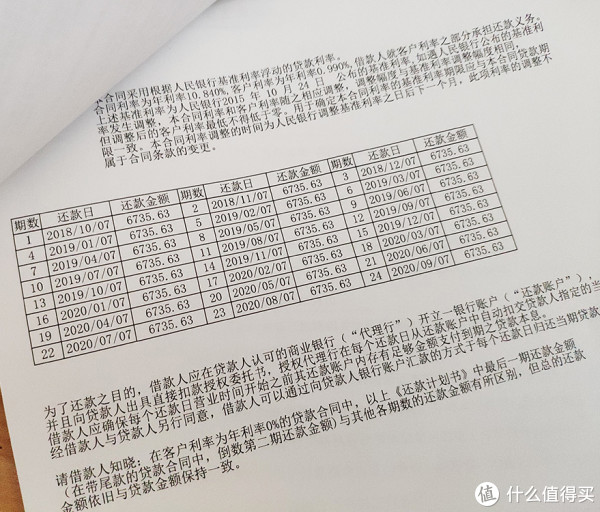 本合同采用根据人民银行基准利率浮动的贷款利率。
合同利率为年利率10.840%,客户利率为年利率0.990%,借款人就客户利率之部分承担还款义务。
上述基准利率为人民银行2015 年 10 月 24 日 公布的基准利率,如遇人民银行公布的基准利
率发生调整,本合同利率和客户利率随之相应调整,调整幅度与基准利率调整幅度相同,
但调整后的客户利率最低不得低于零。用于确定本合同利率的基准利率期限应与本合同贷款期
限一致。本合同利率调整的时间为人民银行调整基准利率之日后下一个月,此项利率的调整不
属于合同条款的变更。
期数 还款日 还款金额 还款日 还款金额 还款日 还款金额
1 2018/10/07 6735.63 2 2018/11/07 6735.63 3 2018/12/07 6735.63
4 2019/01/07 6735.63 5 2019/02/07 6735.63 6 2019/03/07 6735.63
7 2019/04/07 6735.63 8 2019/05/07 6735.63 9 2019/06/07 6735.63
10 2019/07/07 6735.63 11 2019/08/07 6735.63 12 2019/09/07 6735.63
13 2019/10/07 6735.63 14 2019/11/07 6735.63 15 2019/12/07 6735.63
16 2020/01/07 6735.63 17 2020/02/07 6735.63 18 2020/03/07 6735.63
19 2020/04/07 6735.63 20 2020/05/07 6735.63 21 2020/06/07 6735.63
22 2020/07/07 6735.63 23 2020/08/07 6735.63 24 2020/09/07 6735.63
为了还款之目的,借款人应在贷款人认可的商业银行(“代理行”)开立一银行账户(“还款账户”),
并且向贷款人出具直接扣款授权委托书,授权代理行在每个还款日从还款账户中自动扣交贷款人指定的当
借款人应确保每个还款日营业时间开始之前其还款账户内存有足够金额支付到期之贷款本息。
经借款人与贷款人另行同意,借款人可以通过向贷款人银行账户汇款的方式于每个还款日归还当期贷款
请借款人知晓:在客户利率为年利率0%的贷款合同中,以上《还款计划书》中最后一期还款金额
(在带尾款的贷款合同中,倒数第二期还款金额)与其他各期数的还款金额有所区别,但总的还款
金额依旧与贷款金额保持一致。
值 什么值得买